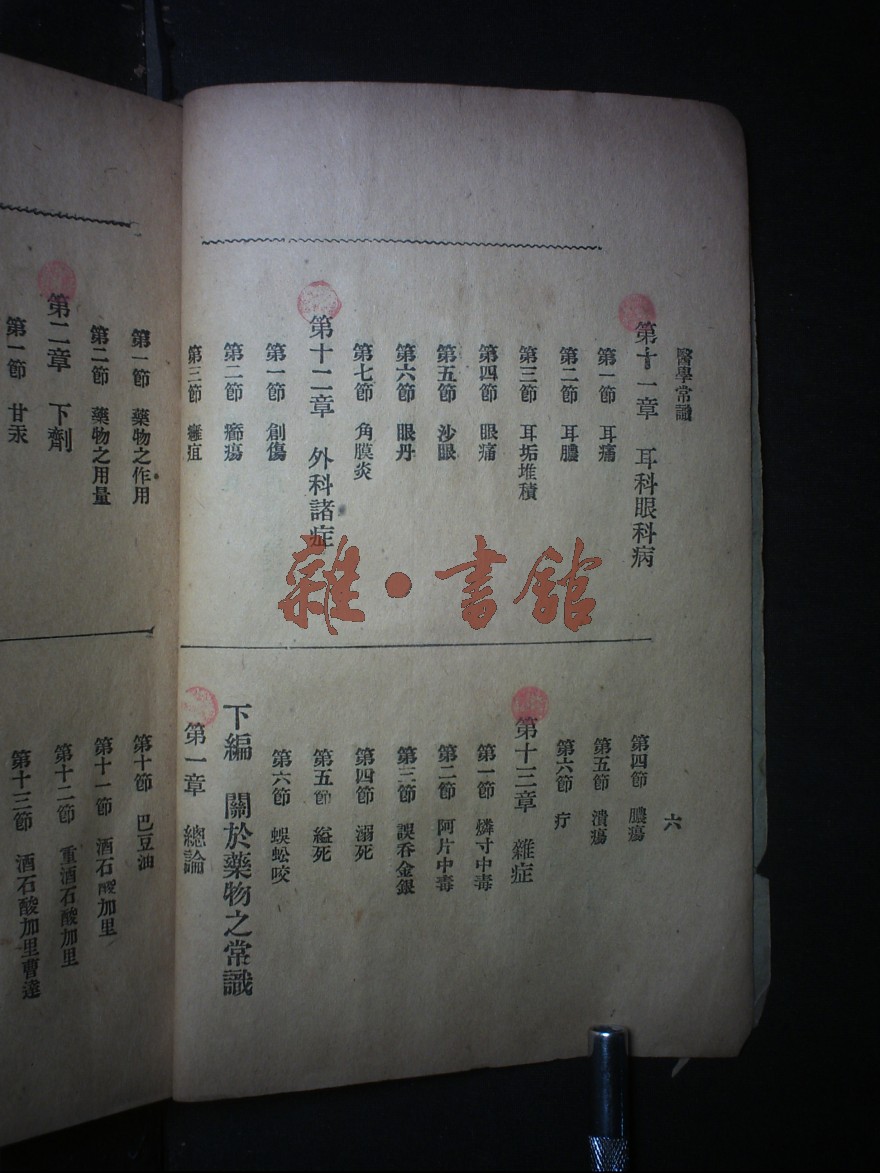 醫學常識
第十一章 耳科眼科病
第一節 耳痛
第二節 耳膿
第三節 耳垢堆積
第四節 眼痛
第五節 沙眼
第六節 眼丹
第七節 角膜炎
第十二章 外科諸症
第一節 創傷
第二節 瘹瘍
第三節 癰疽
六
第四節 膿瘍
第五節 潰瘍
第六節 疔
第十三章 雜症
第一節 燐寸中毒
第二節 阿片中毒
第三節 誤吞金銀
第四節 溺死
第五節 縊死
第六節 蜈蚣咬
下編 關於藥物之常識
第一章 總論
第一節 藥物之作用
第二節 藥物之用量
第二章 下劑
第一節 甘汞
第十節 巴豆油
第十一節 酒石酸加里
第十二節 重酒石酸加里
第十三節 酒石酸加里曹達
雜·書館